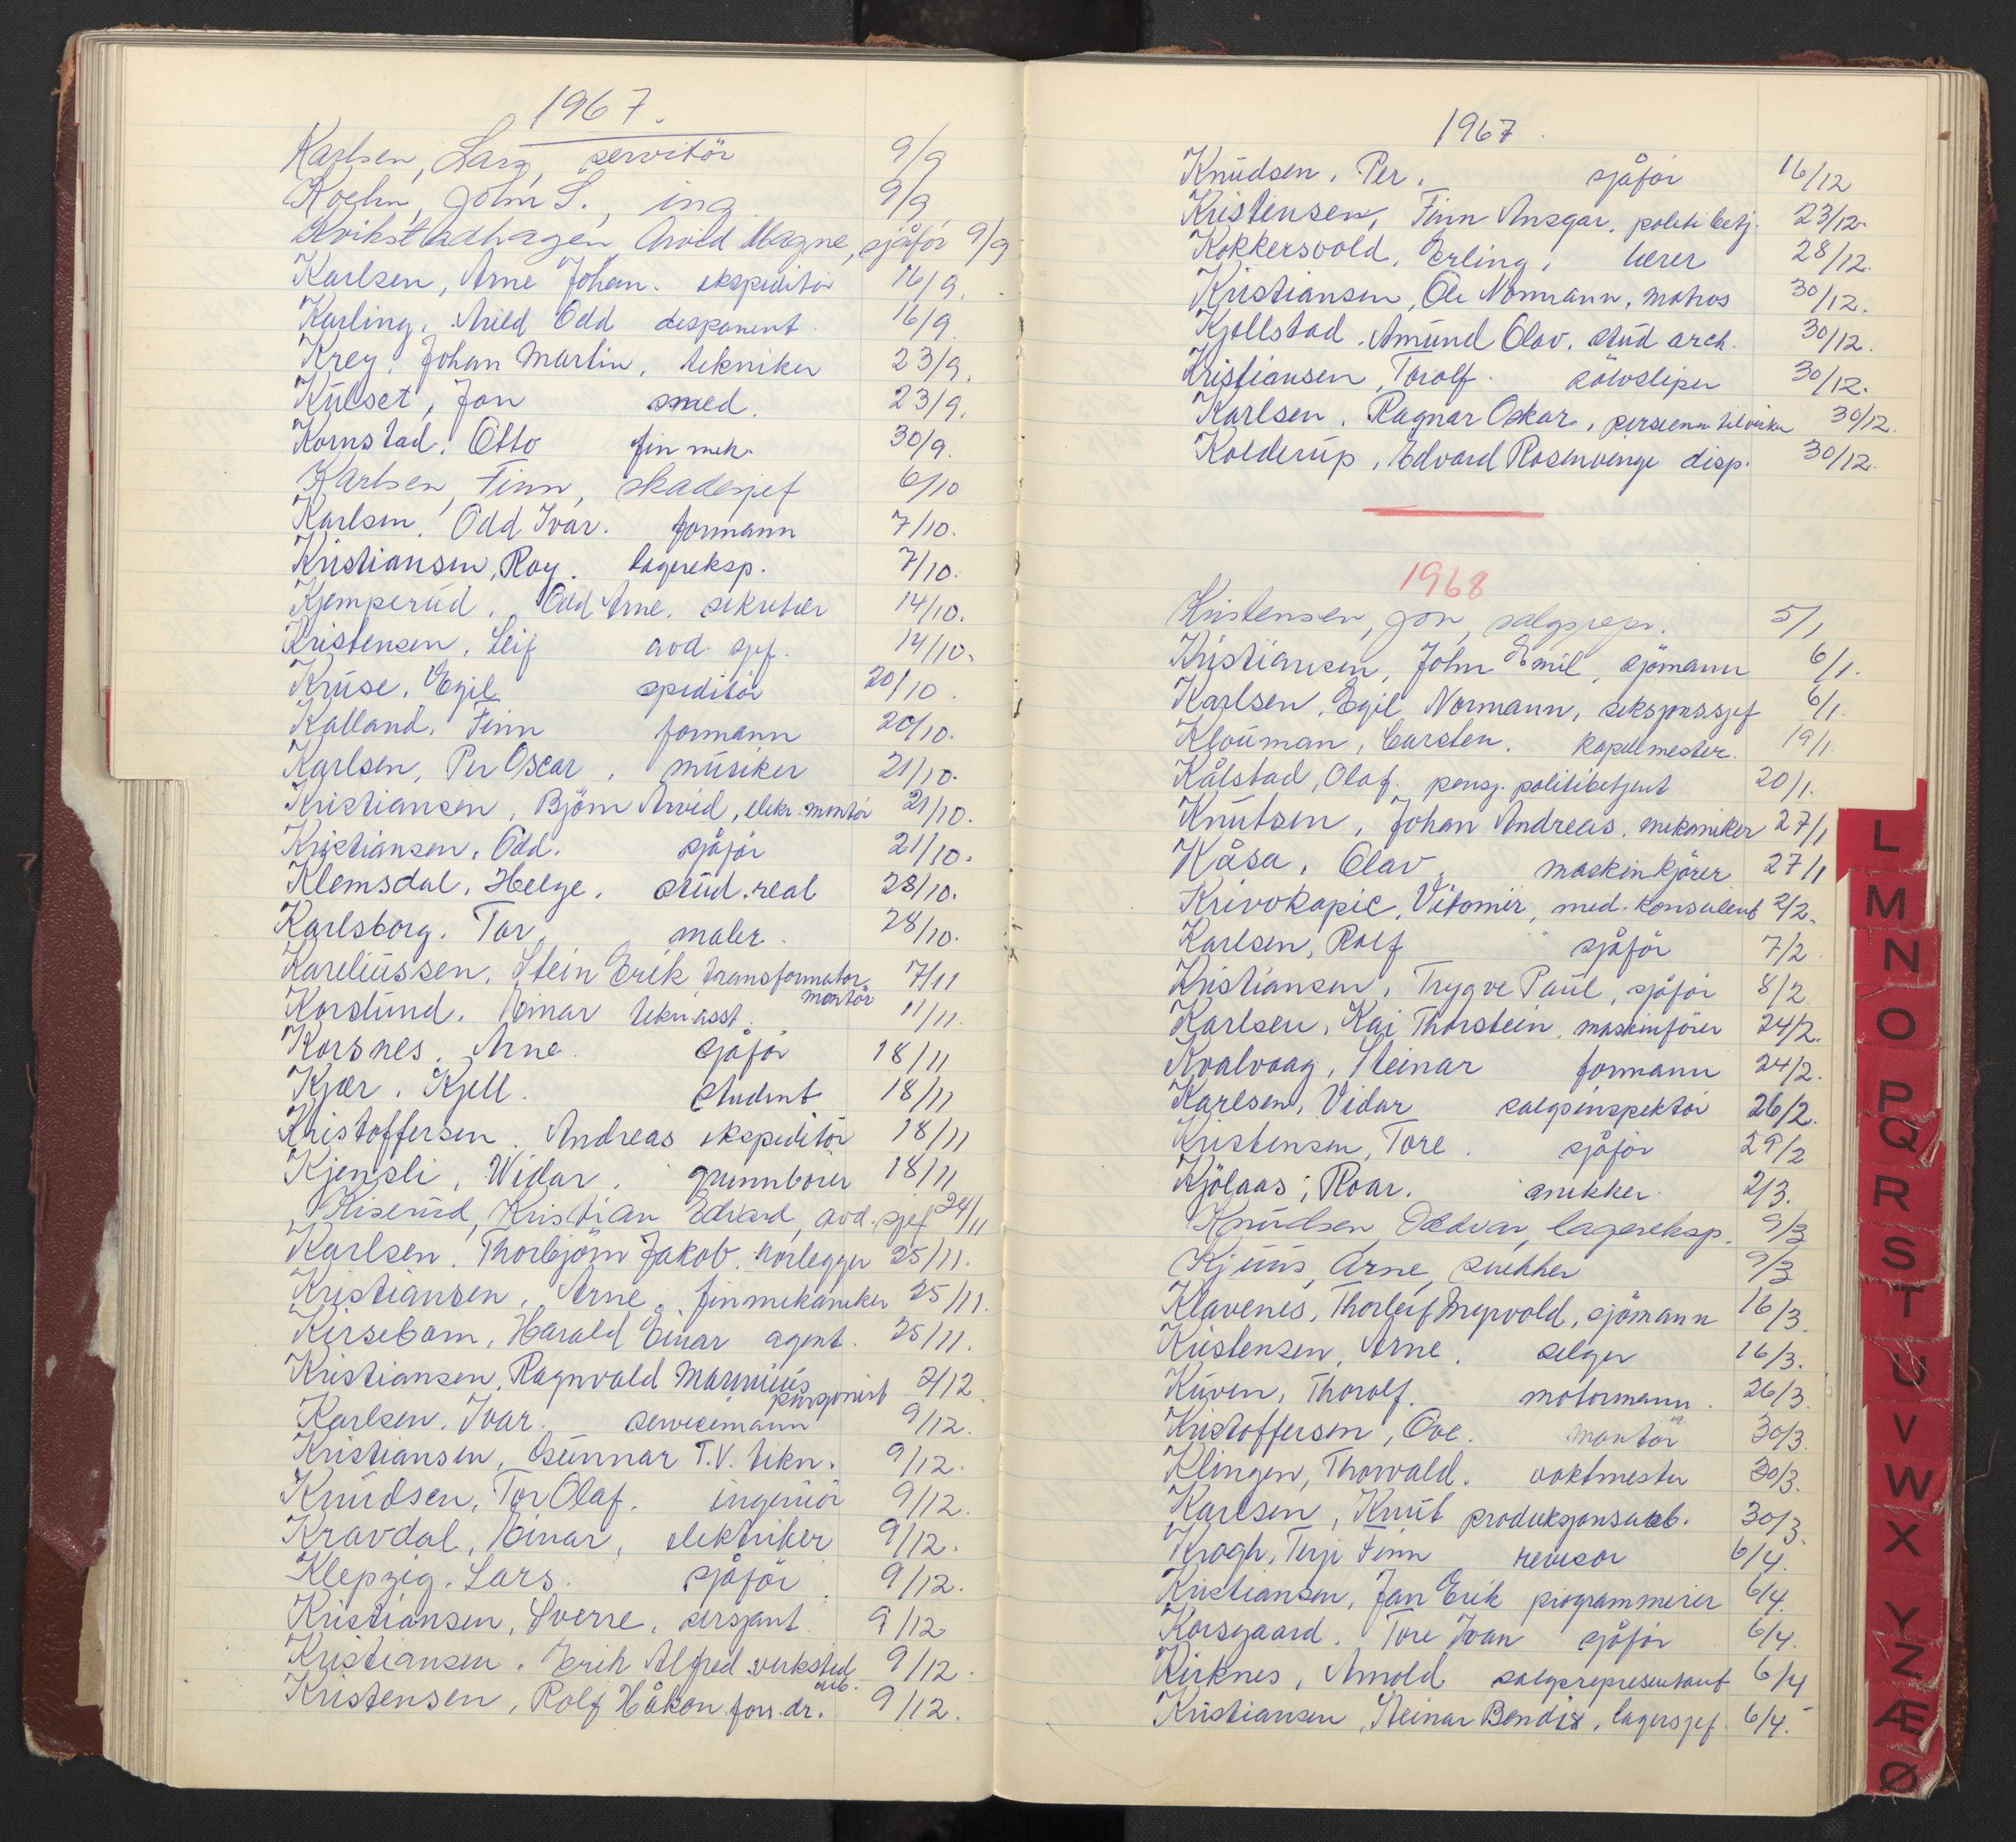 1967.
Karlsen, Lars, servitör 9/9
Koehn, John S., ing. 9/9
Kvikstadhagen, Arvid Magne, sjåför 9/9
Karlsen, Arne Johan. ekspeditör 16/9.
Karling, Arild Odd disponent. 16/9.
Krey, Johan Martin, tekniker 23/9.
Kulset, Jon smed. 23/9.
Kornstad, Otto finmek. 30/9.
Karlsen, Finn, skadesjef 6/10
Karlsen, Odd Ivar. formann 7/10.
Kristiansen, Roy. lagereksp. 7/10.
Kjemperud, Odd Arne, sekretær 14/10.
Kristensen, Leif avd. sjef. 14/10.
Kruse, Egil speditör 20/10.
Kalland, Finn formann 20/10.
Karlsen, Per Oscar, musiker 21/10.
Kristiansen, Björn Arvid, elekr. montör 21/10.
Kristiansen, Odd. sjåför 21/10.
Klemsdal, Helge, stud. real 28/10.
Karlsborg, Tor, maler. 28/10.
Kareliussen, Stein Erik transformator- 7/11
montör
Korslund, Einar tekn. asst. 11/11.
Korsnes, Arne. sjåför 18/11
Kjær, Kjell. student 18/11
Kristoffersen, Andreas ekspeditör 18/11
Kjensli, Widar, grunnborer 18/11
Kiserud, Kristian Edvard, avd. sjef 24/11
Karlsen, Thorbjörn Jakob, rörlegger 25/11.
Kristiansen, Arne, finmekaniker 25/11.
Kirsebom, Harald Einar agent. 25/11.
Kristiansen, Ragnvald Marinius 2/12
pensjonist
Karlsen, Ivar. servicemann 9/12.
Kristiansen, Gunnar T.V. tekn. 9/12.
Knudsen, Tor Olaf, ingeniör 9/12.
Kravdal, Einar, elektriker 9/12.
Klepzig, Lars. sjåför 9/12.
Kristiansen, Sverre, sersjant 9/12
Kristiansen, Erik Alfred verksted 9/12.
arb.
Kristensen, Rolf Håkon fors. dr. 9/12.
1967.
Knudsen, Per, sjåför 16/12
Kristensen, Finn Ansgar, politibetj. 23/12.
Kokkersvold, Erling, lærer 28/12.
Kristiansen, Ole Normann, matros 30/12.
Kjollstad, Amund Olav, stud arch. 30/12.
Kristiansen, Torolf. sölvsliper 30/12.
Karlsen, Ragnar Oskar, persienne tilvirker 30/12.
Kolderup, Edvard Rosenvinge disp. 30/12.
1968
Kristensen, Jon, salgsrepr. 5/1
Kristiansen, John Emil, sjömann 6/1.
Karlsen, Egil Normann, sekspassjef 6/1.
Klouman, Carsten. kapellmester. 19/1
Kålstad, Olaf. pensj. politibetjent 20/1.
Knutsen, Johan Andreas, mekaniker 27/1
Kåsa, Olav, maskinkjörer 27/1
Krivokapic, Vitomir, med. konsulent 2/2.
Karlsen, Rolf sjåför 7/2.
Kristiansen, Trygve Paul, sjåför 8/2
Karlsen, Kai Thorstein, maskinförer 24/2.
Kvalvaag, Steinar formann 24/2.
Karlsen, Vidar salgsinspektör 26/2.
Kristensen, Tore. sjåför 29/2
Kjölaas, Roar. snekker. 2/3.
Knudsen, Oddvar, lagereksp. 9/3
Kjuus, Arne, snekker 9/3
Klavenes, Thorleif Myrvold, sjömann 16/3.
Kristensen, Arne, selger 16/3.
Kuven, Thorolf. motormann. 26/3.
Kristoffersen, Ove. montör 30/3.
Klingen, Thorvald. vaktmester 30/3.
Karlsen, Knut produksjonsarb. 30/3.
Krogh, Terje Finn revisor 6/4.
Kristiansen, Jan Erik programmerer 6/4.
Korsgaard, Tore Ivan sjåför 6/4.
Kirknes, Arnold salgsrepresentant 6/4
Kristiansen, Steinar Bendix, lagersjef. 6/4.
L
M
N
O
P
Q
R
S
T
U
V
W
X
Y
Z
Æ
Ø